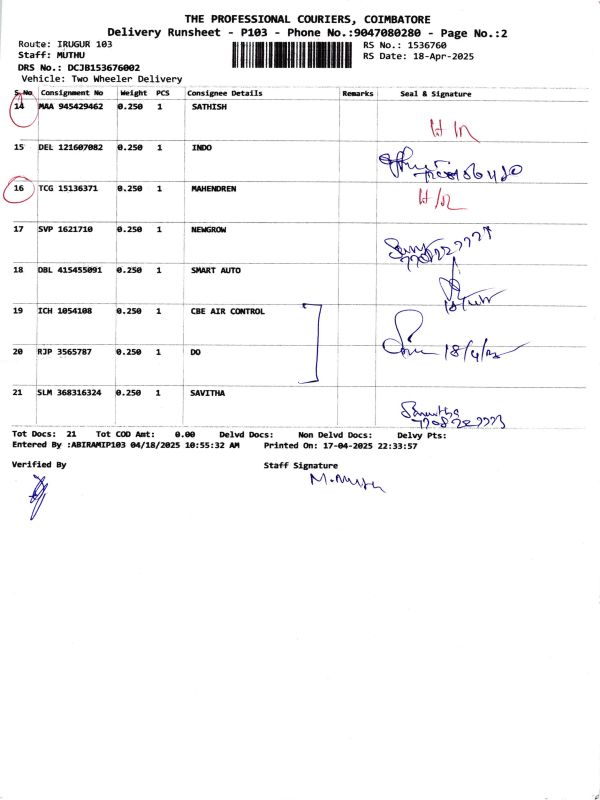 THE PROFESSIONAL COURIERS, COIMBATORE
Delivery Runsheet - P103 - Phone No.:9047080280 - Page No.:2
Route: IRUGUR 103 RS No.: 1536760
Staff: MUTHU RS Date: 18-Apr-2025
DRS No.: DCJB153676002
Vehicle: Two Wheeler Delivery
S.No Consignment No Weight PCS Consignee Details Remarks Seal & Signature
14 MAA 945429462 0.250 1 SATHISH
15 DEL 121607082 0.250 1 INDO
16 TCG 15136371 0.250 1 MAHENDREN
17 SVP 1621710 0.250 1 NEWGROW
18 DBL 415455091 0.250 1 SMART AUTO
19 ICH 1054108 0.250 1 CBE AIR CONTROL
20 RJP 3565787 0.250 1 DO
21 SLM 368316324 0.250 1 SAVITHA
Tot Docs: 21 Tot COD Amt: 0.00 Delvd Docs: Non Delvd Docs: Delvy Pts:
Entered By :ABIRAMIP103 04/18/2025 10:55:32 AM Printed On: 17-04-2025 22:33:57
Verified By Staff Signature